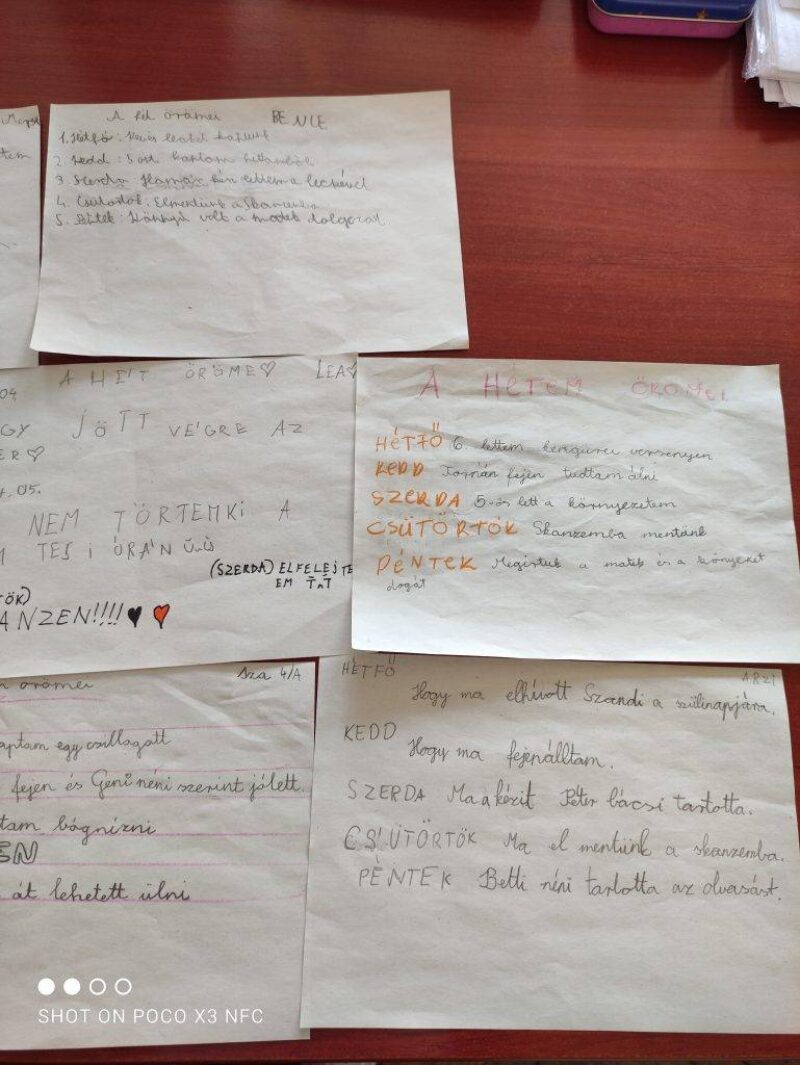 A hét örömei BENCE
1. Hétfő: Kevés leckét kaptunk
2. Kedd: 5 öst kaptam hittanból
3. Szerda Hamar kész lettem a leckével
4. Csütörtök: Elmentünk a Skanzenba
5. Péntek: Könnyű volt a matek dolgozat
tem
A HÉT ÖRÖME♡ LEA♡
04
GY JÖTT VÉGRE AZ
ER♡
05.
NEM TÖRTEMKI A
M TESI ÓRÁN Ü.IS
(SZERDA) ELFELEJTE
EM TxT
ÖK)
ANZEN!!!!♥ ♥
A HÉTEM ÖRÖMEI
HÉTFŐ 6. lettem kenguru versenyen
KEDD Tornán fejen tudtam álni
SZERDA 5-ös lett a környezetem
CSÜTÖRTÖK Skanzemba mentünk
PÉNTEK Megirtuk a matek és a könyezet
dogát
örömei Sza 4/A
aptam egy csillagatt
fejen és Geri néni szerint jólett.
tam bógnizni
EN
át lehetett ülni
HÉTFŐ
Hogy ma elhívott Szandi a szülinapjára.
KEDD
Hogy ma fejenálltam.
SZERDA Ma a kézit Péter bácsi tartotta.
CSÜTÖRTÖK Ma el mentünk a skanzemba.
PÉNTEK Betti néni tartotta az olvasást.
SHOT ON POCO X3 NFC